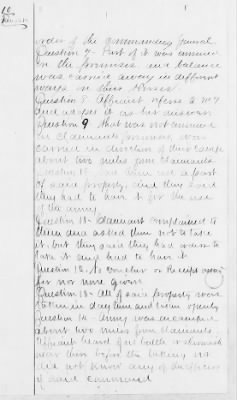 order of the commanding General
Question 7 - Part of it was consumed
on the premises and balance
was carried away in different
ways on their horses
Question 8 - Affiant refers to No 7
and makes it as her answer
Question 9 that was not consumed
on claimants premises was
carried in direction of their camps
about two miles from claimants
Question 10 - had them not a part
of said property and they said
they had to have it for the use
of the army
Question 11 - claimant complained to
them and asked them not to take
it, but they said they had orders to
take it and had to have it
Question 12 No voucher or receipt asked
for no none given
Question 13 - All of said property were
taken in day time and were openly
Question 14 - Army was encamped
about two miles from claimants.
Affiant heard of no battle or skirmish
near there before the taking. He
did not know any of the officers
of said command